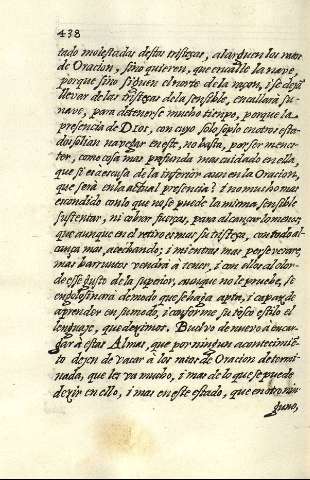 438
tado molestadas destas tristeças, alarguen los ratos
de Oracion, sino quieren, que encalle la nave,
porque sino siguen el norte de la raçon, i se dejã
llevar de las tristeças de la sensible, encallará su
nave, para detenerse mucho tiempo, porque la
presencia de DIOS, con cuyo solo soplo en otros esta-
dos solian navegar en este, no basta, por ser menes-
ter, como cosa mas profunda mas cuidado en ella,
que si era escusa de la inferior aun en la Oracion,
que será en la actual presencia? i no mucho mas
escondido con lo que no se puede la misma sensible
sustentar, ni cobrar fuerças, para alcançar lo menos;
que aunque en el retiro es mas su tristeça, con todo al-
cança mas, acechando; i mientras mas perseverare,
mas barruntos vendrá à tener, i con el os el olor
de esse gusto de la superior, aunque no le pruebe, se
engolosinará de modo que se haga apta, i capaz de
aprender en su modo, i conforme su tosco estilo el
lenguaje, que deximos. Buelvo de nuevo à encar-
gar à estas Almas, que por ningun acontecimiẽ-
to dejen de vacar à los ratos de Oracion determi-
nada, que les va mucho, i mas de lo que se puede
dezir en ello, i mas en este estado, que en otro nin-
guno,